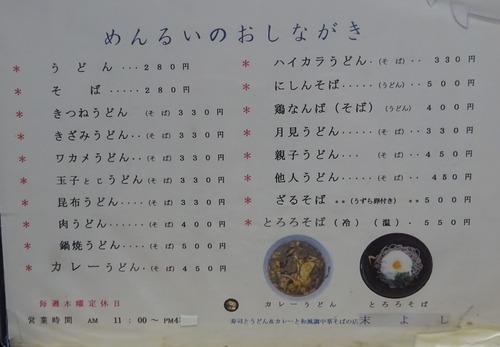 めんるいのおしながき
* うどん・・・280円
* そば・・・・・280円
* きつねうどん (そば) 330円
* きざみうどん・・(そば) 330円
* ワカメうどん・・(そば) 330円
* 玉子とじうどん(そば) 330円
* 昆布うどん・・・・(そば) 330円
* 肉うどん・・・・・(そば) 400円
* 鍋焼うどん・・・・(そば) 500円
* カレーうどん・(そば) 450円
* ハイカラうどん・(そば)・・330円
* にしんそば・・・・・(うどん) 500円
* 鶏なんば(そば) (うどん) 400円
* 月見うどん・・・・・(そば) 330円
* 親子うどん・・・ (そば) 450円
* 他人うどん・・・・・(そば) 450円
* ざるそば ** (うずら卵付き) **500円
* とろろそば(冷)(温)・550円
カレーうどん
とろろそば
毎週木曜定休日
営業時間 AM 11:00〜PM4
寿司とうどん&カレーと和風調中華そばの店 末よし